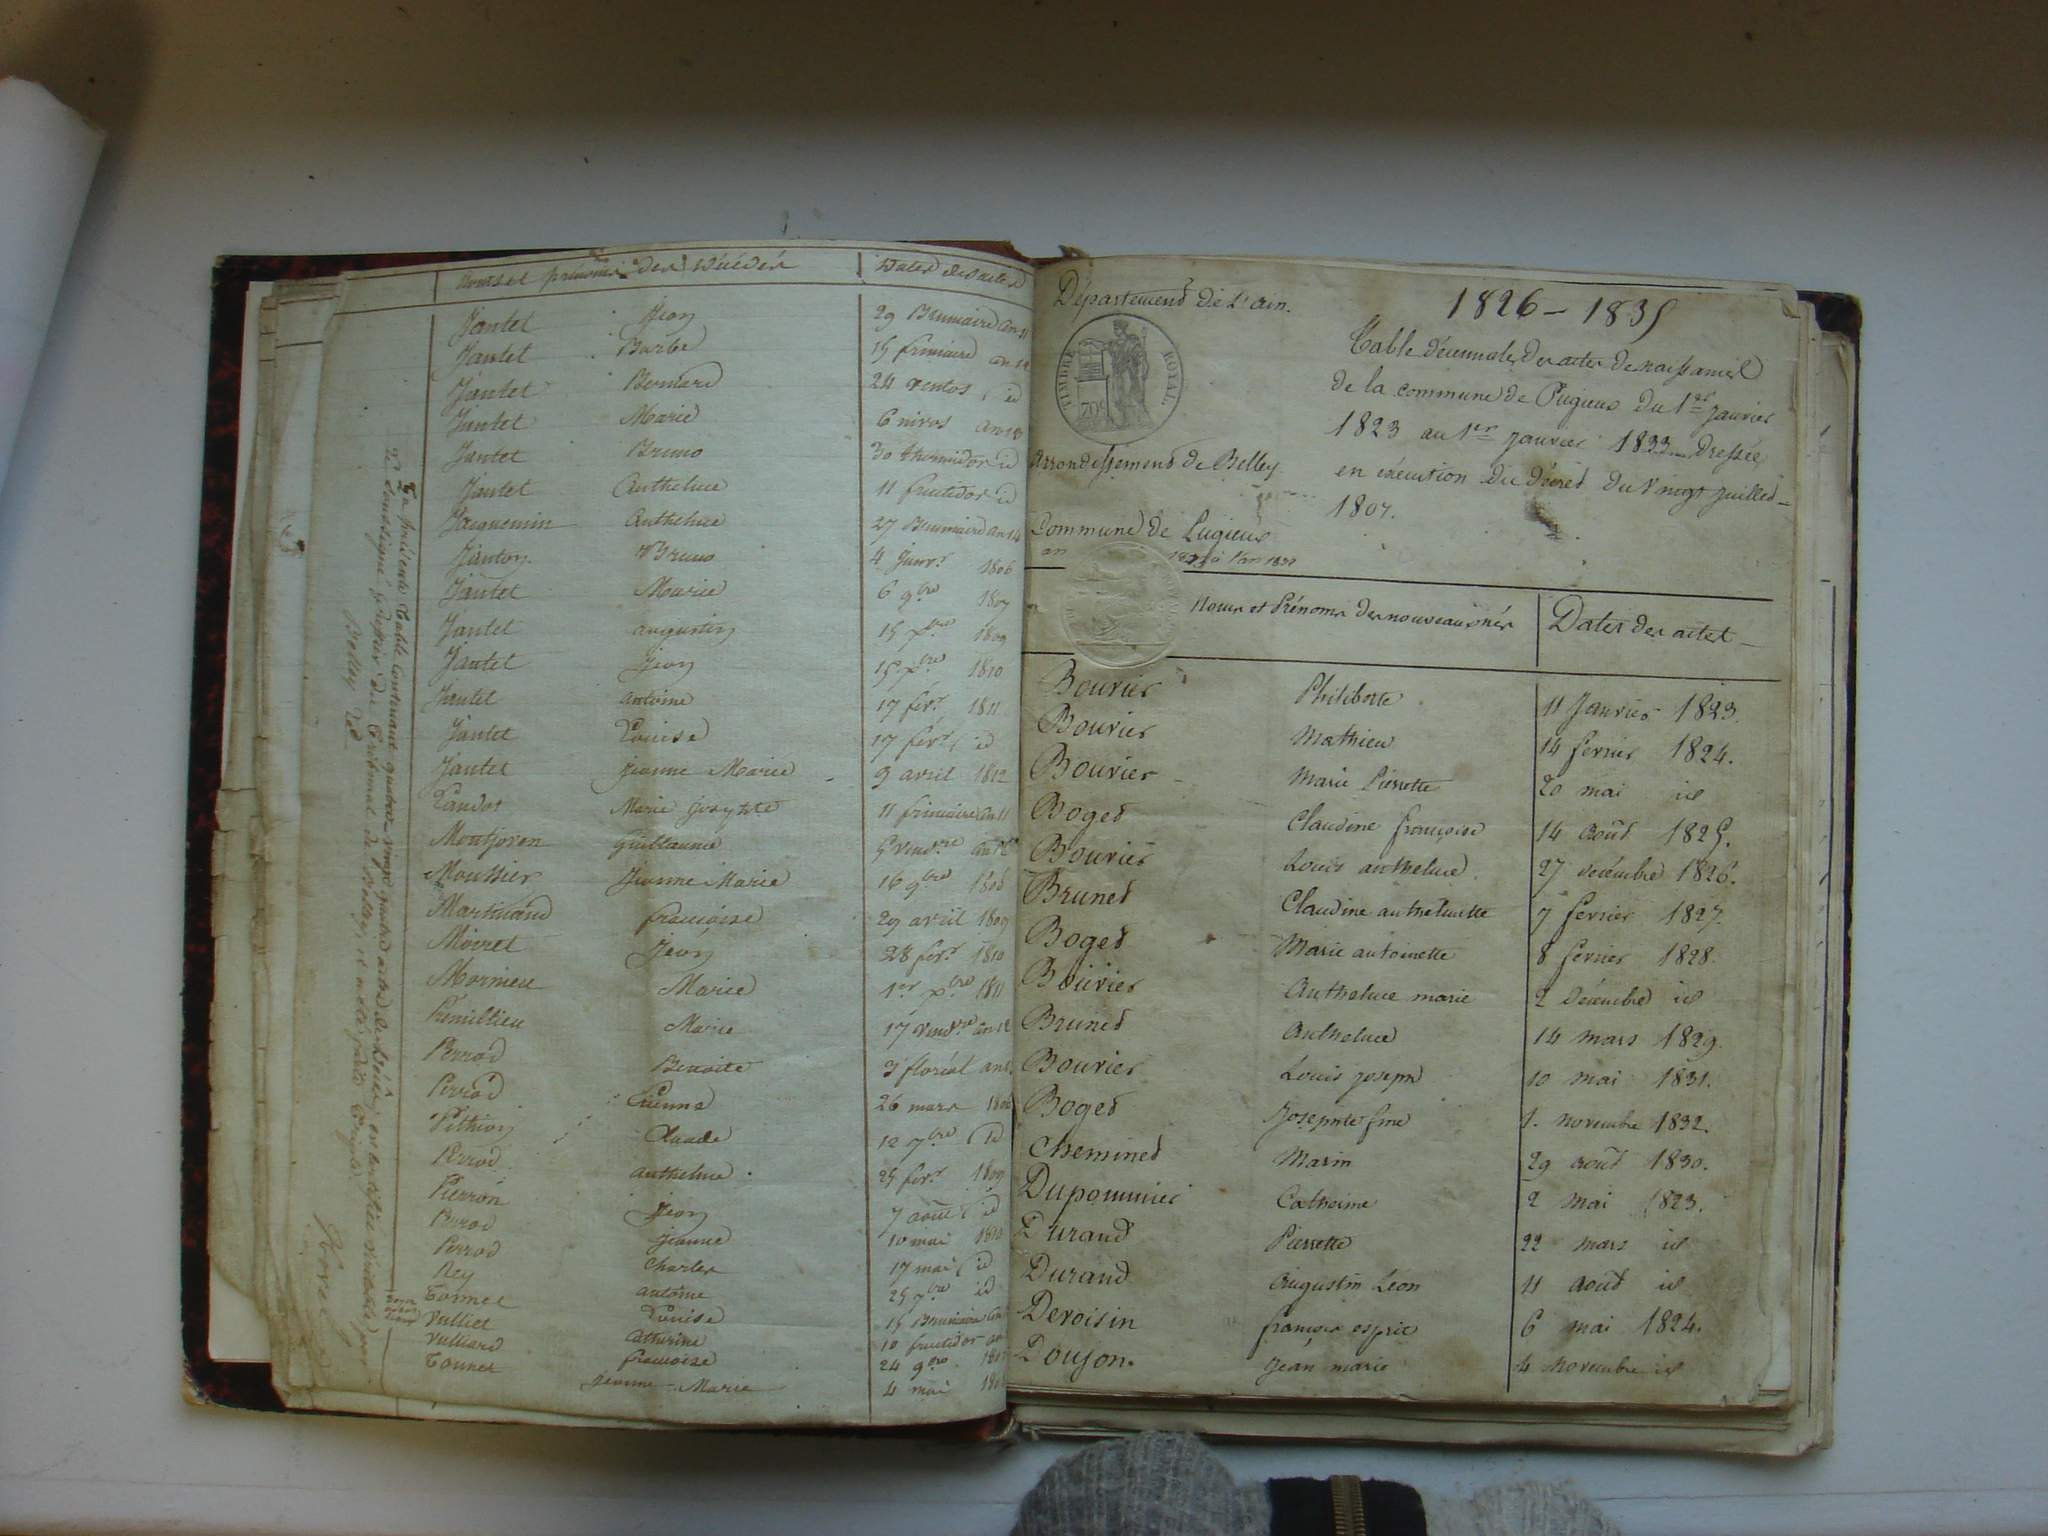 Noms et prénoms des Décédés Dates des actes
Jantet Jean 29 Brumaire an 11
Jantet Barbe 15 frimaire an 12
Jantet Bernard 24 ventos id
Jantet Marie 6 nivos an 13
Jantet Bruno 30 thermidor id
Jantet Anthelme 11 fructidor id
Jacquemin Anthelme 27 Brumaire an 14
Janton Bruno 4 Janvr 1806
Jantet Marie 6 9bre 1807
Jantet augustin 15 1809
Jantet Jean 15 1810
Jantet antoine 17 fevr 1811
Jantet Louise 17 fevr id
Jantet Jeanne Marie 9 avril 1812
Landot Marie Josephte 11 frimaire an 11
Montjoven Guillaume 5 vendre
Moussier Jeanne Marie 16 9bre 1808
Martinand françoise 29 avril 1809
Moiret Jean 28 fevr 1810
Mornieu Marie 1er xbre 1811
Premillieu Marie 17 vendre an 12
Perrod Benoite 3 floréal
Perrod Etienne 26 mars
Pithion Claude 12 7bre id
Perrod anthelme 25 fevr 1809
Pierron Jean 7 août id
Perrod Jeanne 10 mai 1810
Perrod Charles 17 mai id
Rey antoine 25 7bre id
Tonnet Louise 15 Brumaire
Vulliet Catherine 10 fructidor
Vulliard françoise 24 9bre
Tonnet Jeanne-Marie 4 mai
La présente Table Contenant quatre vingt quatre actes de décès, en certifiée véritable par
le soussigné greffier du Tribunal de Belley
Belley
1826 - 1835
Département de L'ain.
TIMBRE ROYAL
70c
Arrondissement de Belley
Commune de Pugieux
an 1823 à l'an 1833
Table décennale des actes de naissances
de la commune de Pugieux du 1er Janvier
1823 au 1er Janvier 1833 dressée
en exécution du décret du Vingt Juillet
1807.
Noms et Prénoms des nouveaux nés Dates des actes
Bouvier Philiberte 11 Janvier 1823.
Bouvier Mathieu 14 fevrier 1824.
Bouvier Marie Pierrette 20 mai id
Boged Claudine françoise 14 août 1825.
Bouvier Louis anthelme 27 decembre 1826.
Bruned Claudine anthelmette 7 fevrier 1827.
Boged Marie antoinette 8 fevrier 1828.
Bouvier Anthelme marie 2 Décembre id
Bruned Anthelme 14 mars 1829.
Bouvier Louis joseph 10 mai 1831.
Boged Josephte fine 1. novembre 1832.
Chemined Marin 29 août 1830.
Dupommier Catherine 2 mai 1823.
Durand Pierrette 22 mars id
Durand Augustin Léon 11 août id
Devoisin françois esprit 6 mai 1824.
Doujon. Jean marie 4 Novembre id